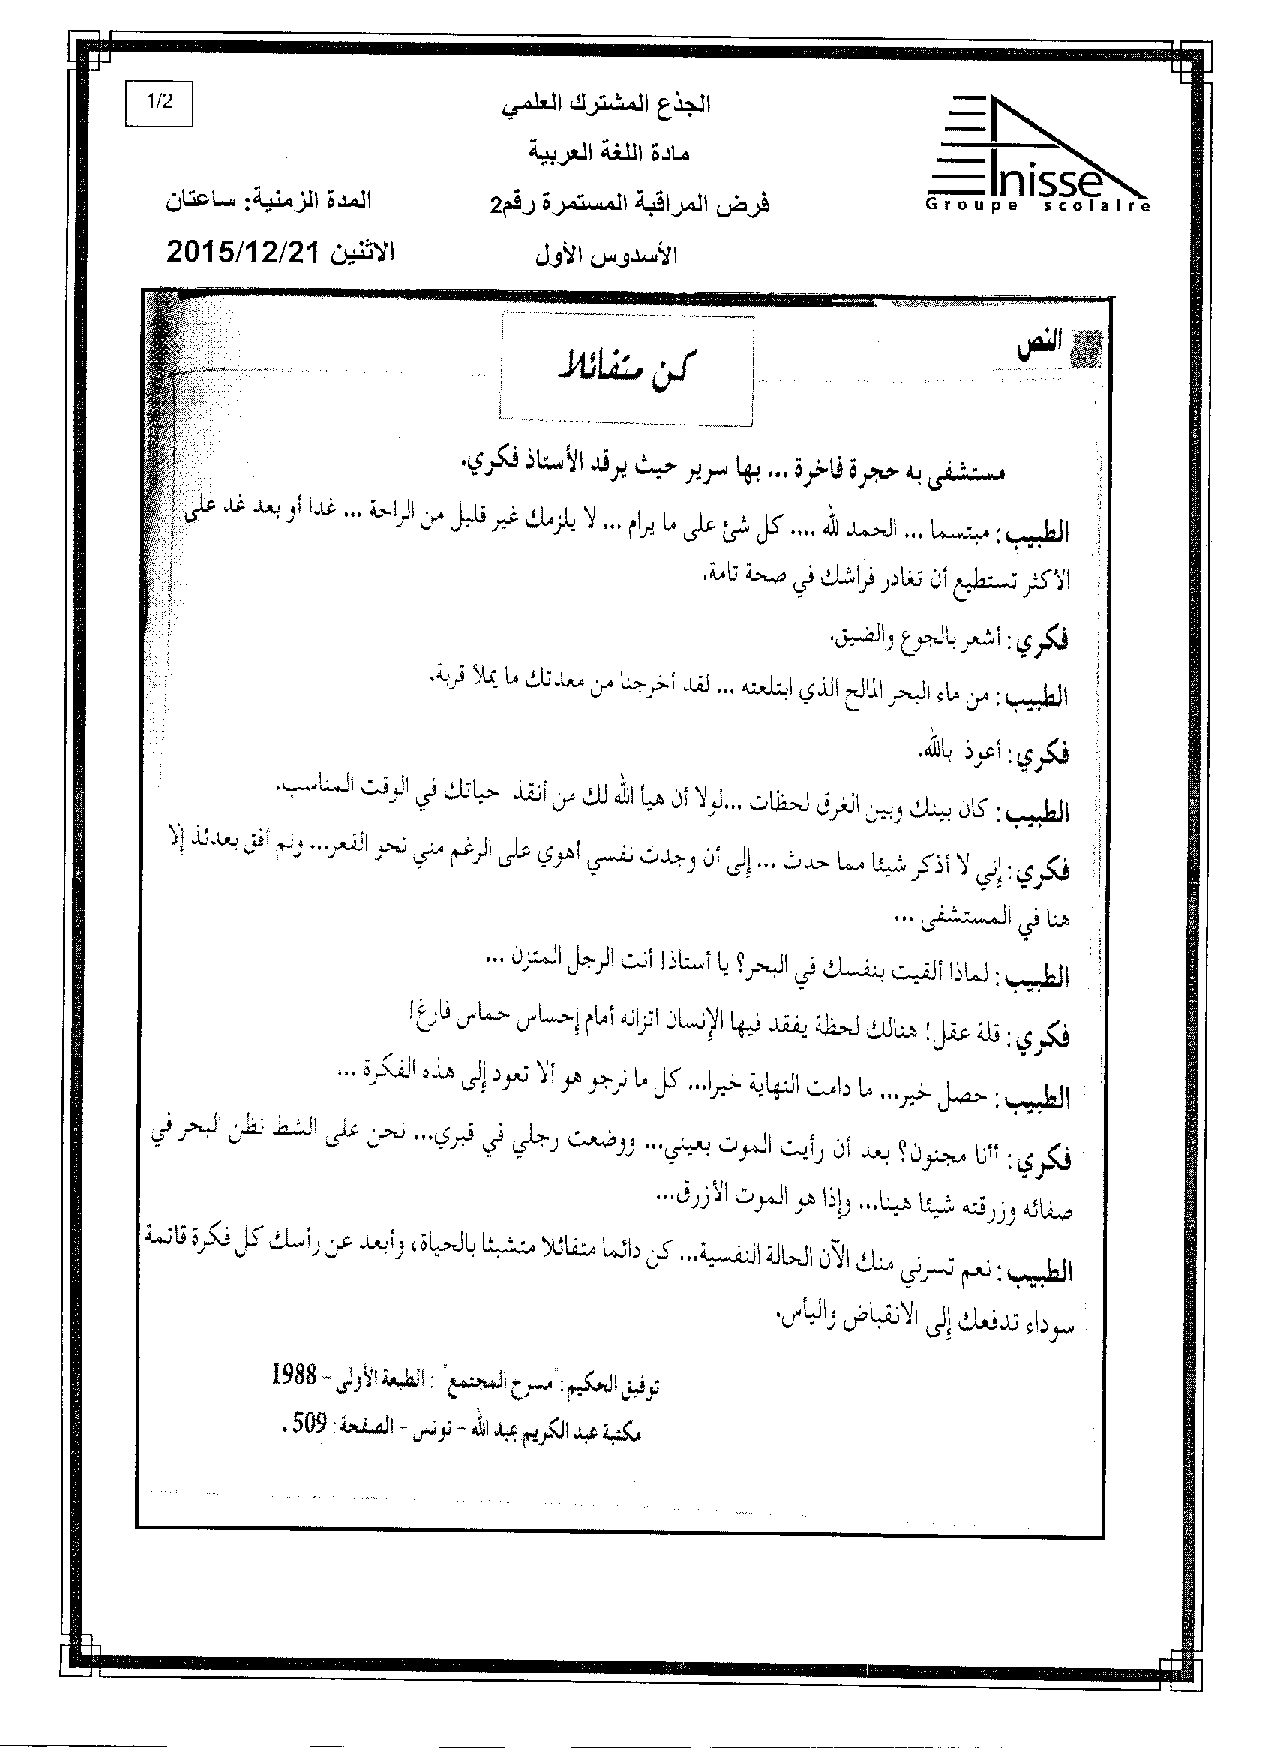 1/2
الجذع المشترك العلمي
مادة اللغة العربية
فرض المراقبة المستمرة رقم2
المدة الزمنية: ساعتان
الأسدوس الأول
الاثنين 2015/12/21
Anisse
Groupe scolaire
النص
كن متفائلا
مستشفى به حجرة فاخرة ... بها سرير حيث يرقد الأستاذ فكري.
الطبيب: مبتسما ... الحمد لله .... كل شئ على ما يرام ... لا يلزمك غير قليل من الراحة ... غدا أو بعد غد على
الأكثر تستطيع أن تغادر فراشك في صحة تامة.
فكري: أشعر بالجوع والضيق.
الطبيب: من ماء البحر المالح الذي ابتلعته ... لقد أخرجنا من معدتك ما يملأ قربة.
فكري: أعوذ بالله.
الطبيب: كان بينك وبين الغرق لحظات ...لولا أن هيأ الله لك من أنقذ حياتك في الوقت المناسب.
فكري: إني لا أذكر شيئا مما حدث ... إلى أن وجدت نفسي أهوي على الرغم مني نحو القعر... ولم أفق بعدئذ إلا
هنا في المستشفى ...
الطبيب: لماذا ألقيت بنفسك في البحر؟ يا أستاذ! أنت الرجل المتزن ...
فكري: قلة عقل! هنالك لحظة يفقد فيها الإنسان اتزانه أمام إحساس حماس فارغ!
الطبيب: حصل خير... ما دامت النهاية خيرا... كل ما نرجو هو ألا تعود إلى هذه الفكرة ...
فكري: "أنا مجنون؟ بعد أن رأيت الموت بعيني... ووضعت رجلي في قبري... نحن على الشط نظن البحر في
صفائه وزرقته شيئا هينا... وإذا هو الموت الأزرق...
الطبيب: نعم تسرني منك الآن الحالة النفسية... كن دائما متفائلا متشبثا بالحياة، وأبعد عن رأسك كل فكرة قائمة
سوداء تدفعك إلى الانقباض واليأس.
توفيق الحكيم: "مسرح المجتمع" : الطبعة الأولى - 1988
مكتبة عبد الكريم عبد الله - تونس - الصفحة: 509 .